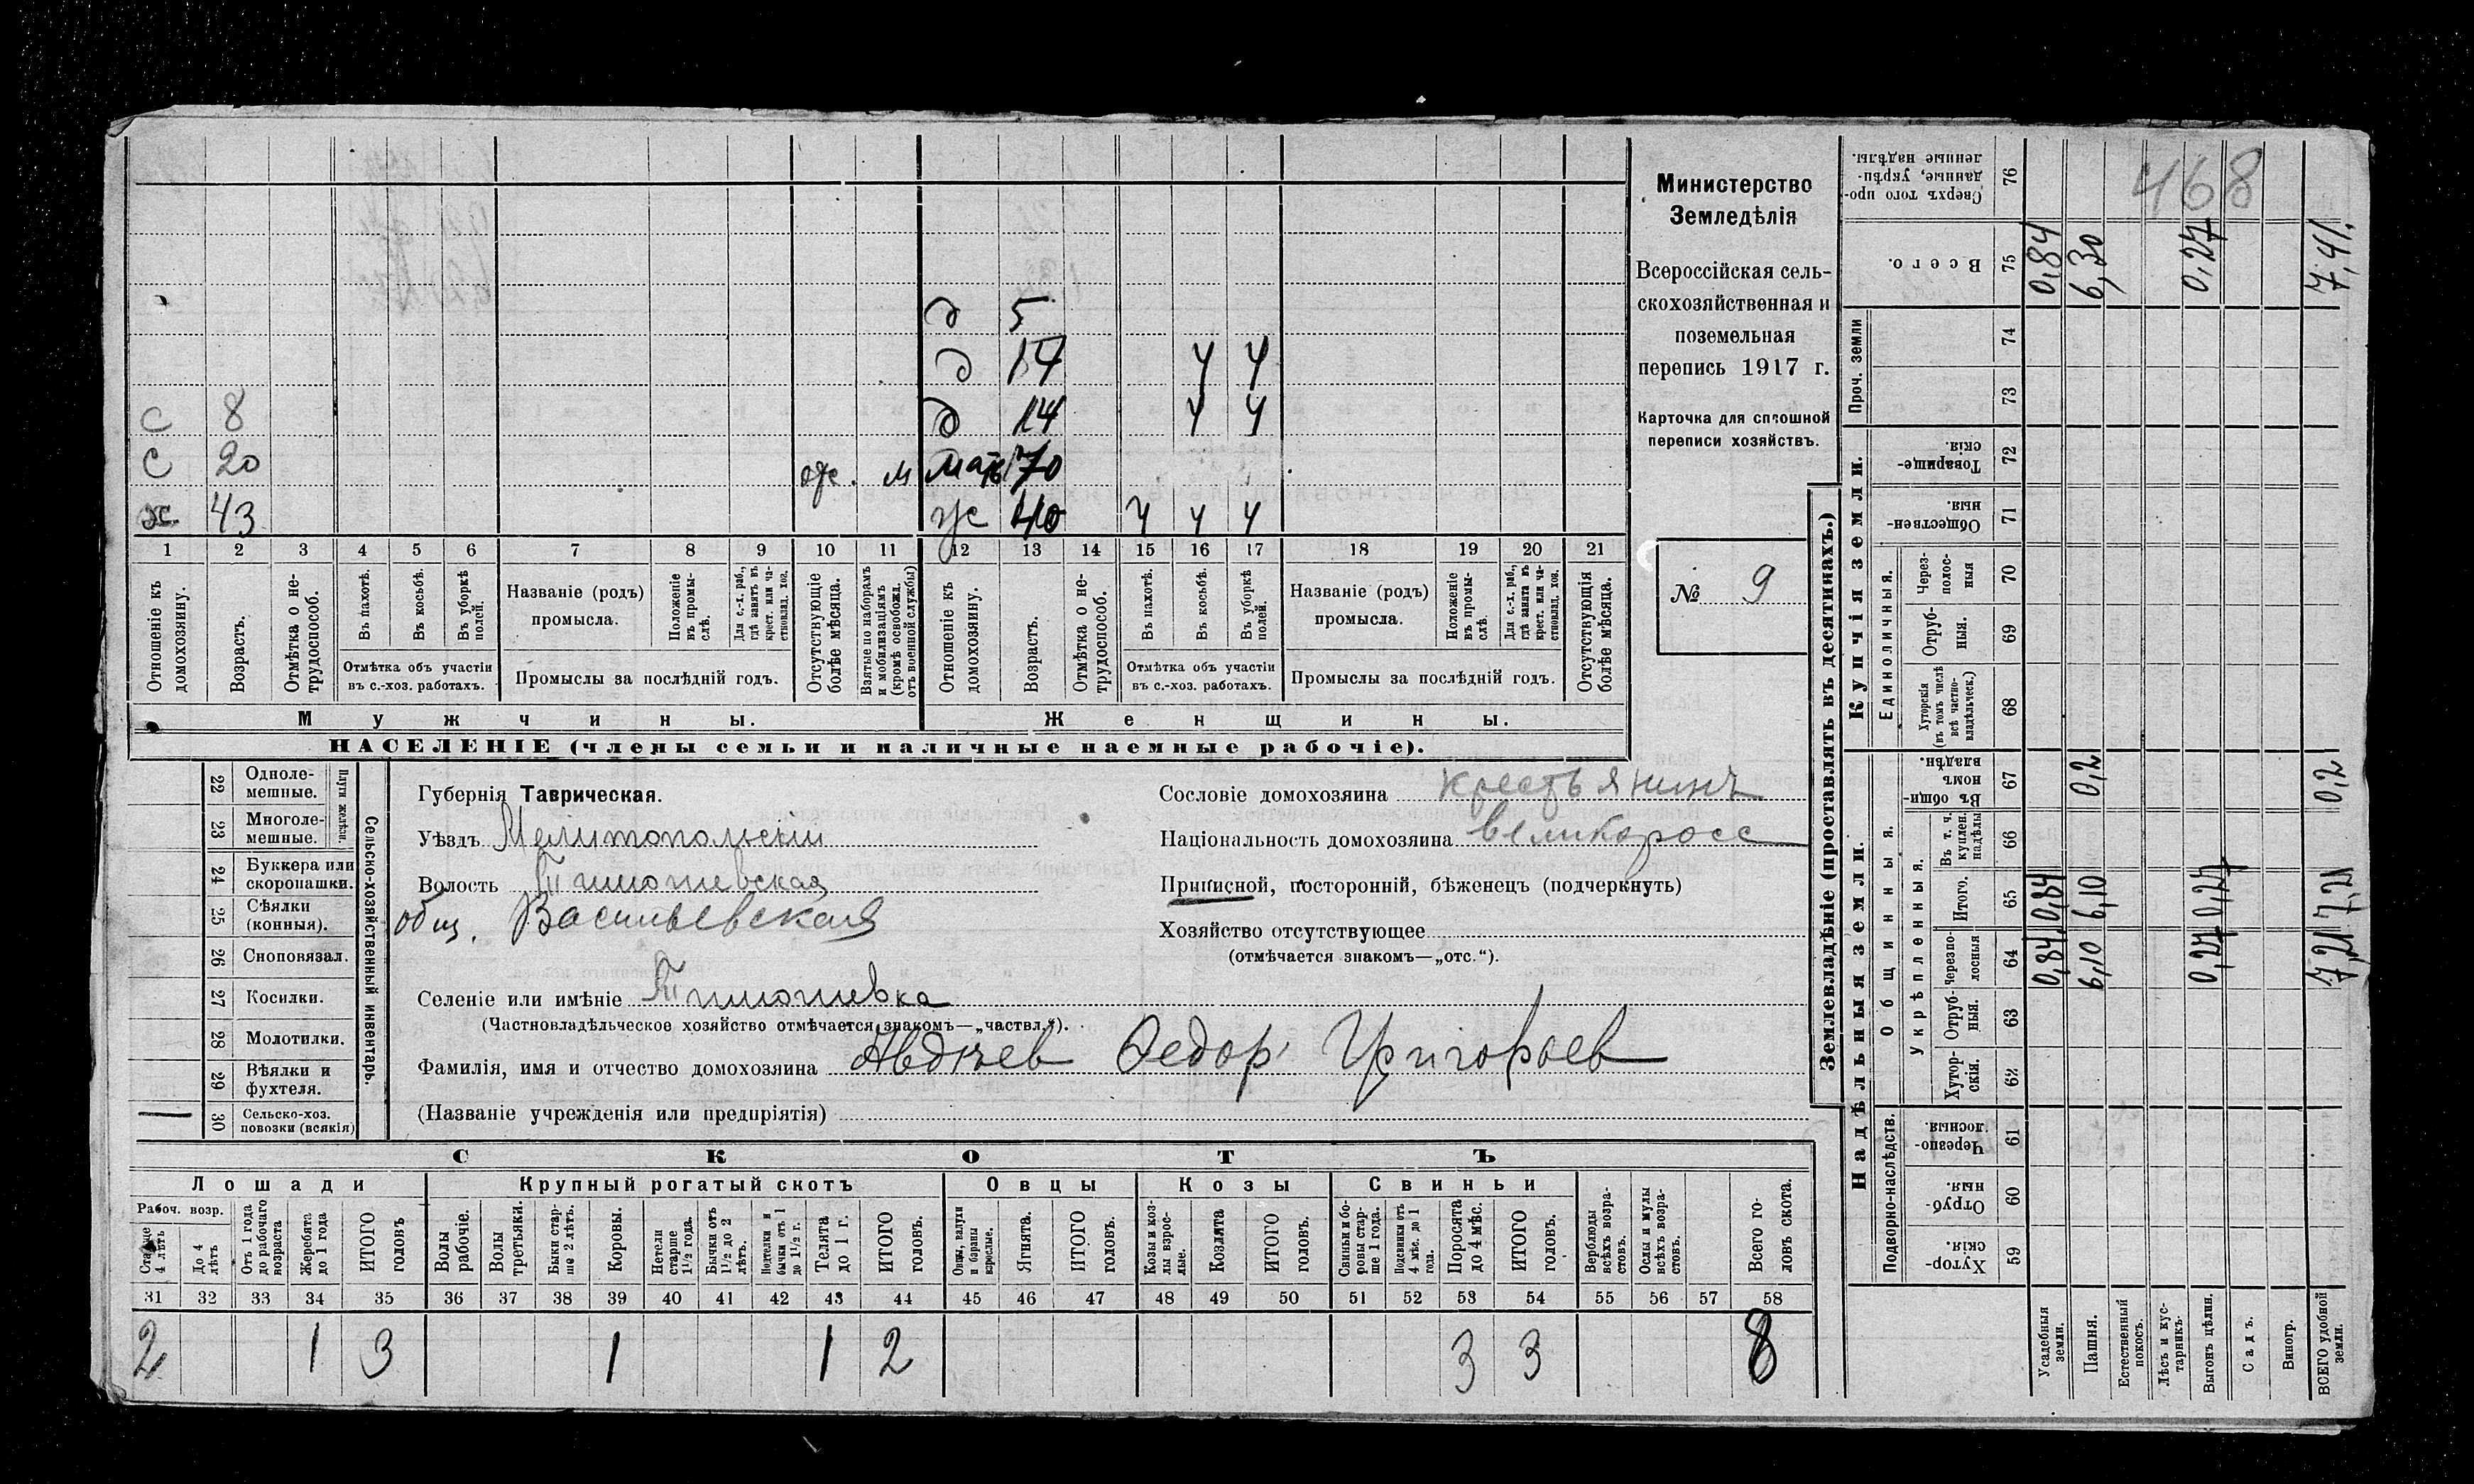 Министерство
Земледѣлія
Всероссійская сель-
скохозяйственная и
поземельная
перепись 1917 г.
Карточка для сплошной
переписи хозяйствъ.
№ 9
468
д 5
д 17 ч ч
С 8 д 14 ч ч
С 20 м мать 70
43 ж 40 ч ч ч
1 2 3 4 5 6 7 8 9 10 11 12 13 14 15 16 17 18 19 20 21
Отношеніе къ домохозяину.
Возрастъ.
Отмѣтка о не-трудоспособ.
Въ пахотѣ.
Въ косьбѣ.
Въ уборкѣ полей.
Отмѣтка объ участіи въ с.-хоз. работахъ.
Названіе (родъ) промысла.
Положеніе въ промы-слѣ.
Для с.-х. раб., гдѣ занятъ въ крест. или ча-стновлад. хоз.
Промыслы за послѣдній годъ.
Отсутствующіе болѣе мѣсяца.
Взятые по наборамъ и мобилизаціямъ (кромѣ освобожд. отъ военной службы)
Отношеніе къ домохозяину.
Возрастъ.
Отмѣтка о не-трудоспособ.
Въ пахотѣ.
Въ косьбѣ.
Въ уборкѣ полей.
Отмѣтка объ участіи въ с.-хоз. работахъ.
Названіе (родъ) промысла.
Положеніе въ промы-слѣ.
Для с.-х. раб., гдѣ занята въ крест. или ча-стновлад. хоз.
Промыслы за послѣдній годъ.
Отсутствующія болѣе мѣсяца.
Мужчины. Женщины.
НАСЕЛЕНІЕ (члены семьи и наличные наемные рабочіе).
22 Одноле-мешные.
23 Многоле-мешные.
Плуги желѣзн.
24 Буккера или скоропашки.
25 Сѣялки (конныя).
26 Сноповязал.
27 Косилки.
28 Молотилки.
29 Вѣялки и фухтеля.
30 Сельско-хоз. повозки (всякія)
Сельско-хозяйственный инвентарь.
Губернія Таврическая.
Уѣздъ Мелитопольскій
Волость Тимошевская
общ. Васильевская
Селеніе или имѣніе Тимошевка
(Частновладѣльческое хозяйство отмѣчается знакомъ—„частвл.“).
Фамилія, имя и отчество домохозяина Авдѣев Федор Григорьев
(Названіе учрежденія или предпріятія)
Сословіе домохозяина крестьянинъ
Національность домохозяина великоросс
Приписной, посторонній, бѣженецъ (подчеркнуть)
Хозяйство отсутствующее
(отмѣчается знакомъ—„отс.“).
СКОТЪ
Лошади Крупный рогатый скотъ Овцы Козы Свиньи
Рабоч. возр.
Старше 4 лѣтъ
До 4 лѣтъ
Отъ 1 года до рабочаго возраста
Жеребята до 1 года
ИТОГО головъ
Волы рабочіе.
Волы третьяки.
Быки стар-ше 2 лѣтъ.
Коровы.
Нетели старше 1½ года.
Бычки отъ 1½ до 2 лѣтъ.
Подтелки и бычки отъ 1 до 1½ г.
Телята до 1 г.
ИТОГО головъ.
Овцы, валухи и бараны взрослые.
Ягнята.
ИТОГО головъ.
Козы и коз-лы взрос-лые.
Козлята
ИТОГО головъ.
Свиньи и бо-ровы стар-ше 1 года.
Подсвинки отъ 4 мѣс. до 1 года.
Поросята до 4 мѣс.
ИТОГО головъ.
Верблюды всѣхъ возра-стовъ.
Ослы и мулы всѣхъ возра-стовъ.
Всего го-ловъ скота.
31 32 33 34 35 36 37 38 39 40 41 42 43 44 45 46 47 48 49 50 51 52 53 54 55 56 57 58
2 1 3 1 1 2 3 3 8
Землевладѣніе (проставлять въ десятинахъ.)
Купчія земли.
Надѣльныя земли.
Сверхъ того про-данные, укрѣп-ленные надѣлы. 76
Всего. 75 0,84 6,30 0,27 7,41.
Проч. земли 74 73
Товарище-скія. 72
Обществен-ныя. 71
Единоличныя.
Черезполос-ныя 70
Отруб-ныя. 69
Хуторскія (въ томъ числѣ всѣ частно-владѣльческ.) 68
Общинныя.
Въ общин-номъ владѣн. 67 0,2 0,2
Укрѣпленныя.
Въ т. ч. куплен. надѣлы 66
Итого. 65 0,84 6,10 0,27 7,21
Черезпо-лосныя 64 0,84 6,10 0,27 7,21
Отруб-ныя. 63
Хутор-скія. 62
Подворно-наслѣдств.
Черезпо-лосныя. 61
Отруб-ныя. 60
Хутор-скія. 59
Усадебныя земли.
Пашня.
Естественный покосъ.
Лѣсъ и кус-тарникъ.
Выгонъ цѣлин.
Садъ.
Виногр.
ВСЕГО удобной земли.